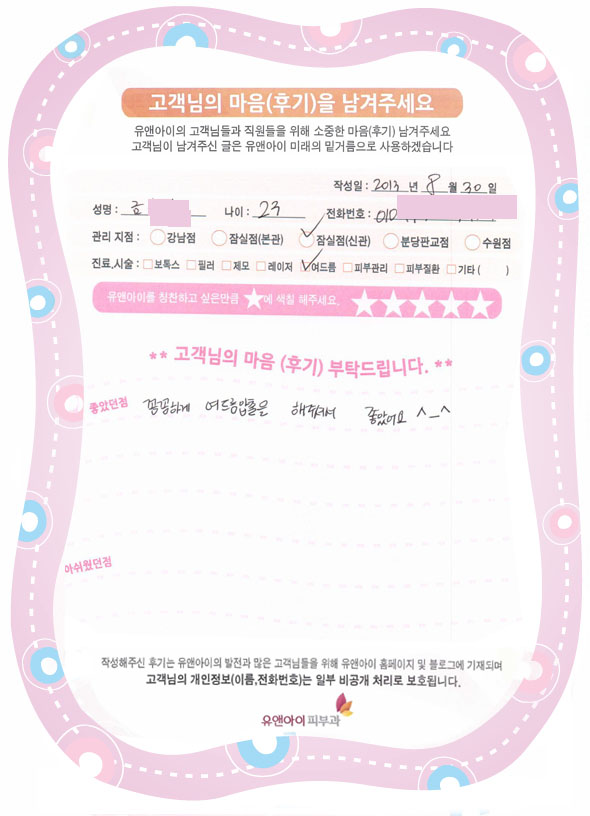 고객님의 마음(후기)을 남겨주세요
유앤아이의 고객님들과 직원들을 위해 소중한 마음(후기) 남겨주세요
고객님이 남겨주신 글은 유앤아이 미래의 밑거름으로 사용하겠습니다
작성일 : 2013 년 8 월 30 일
성명 : 나이 : 23 전화번호 : 010
관리 지점 : 강남점 잠실점(본관) 잠실점(신관) 분당판교점 수원점
진료,시술 : 보톡스 필러 제모 레이저 여드름 피부관리 피부질환 기타 ( )
유앤아이를 칭찬하고 싶은만큼 ★에 색칠 해주세요. ★★★★★
** 고객님의 마음 (후기) 부탁드립니다. **
좋았던점 꼼꼼하게 여드름압출을 해주셔서 좋았어요 ^_^
아쉬웠던점
작성해주신 후기는 유앤아이의 발전과 많은 고객님들을 위해 유앤아이 홈페이지 및 블로그에 기재되며
고객님의 개인정보(이름,전화번호)는 일부 비공개 처리로 보호됩니다.
유앤아이 피부과